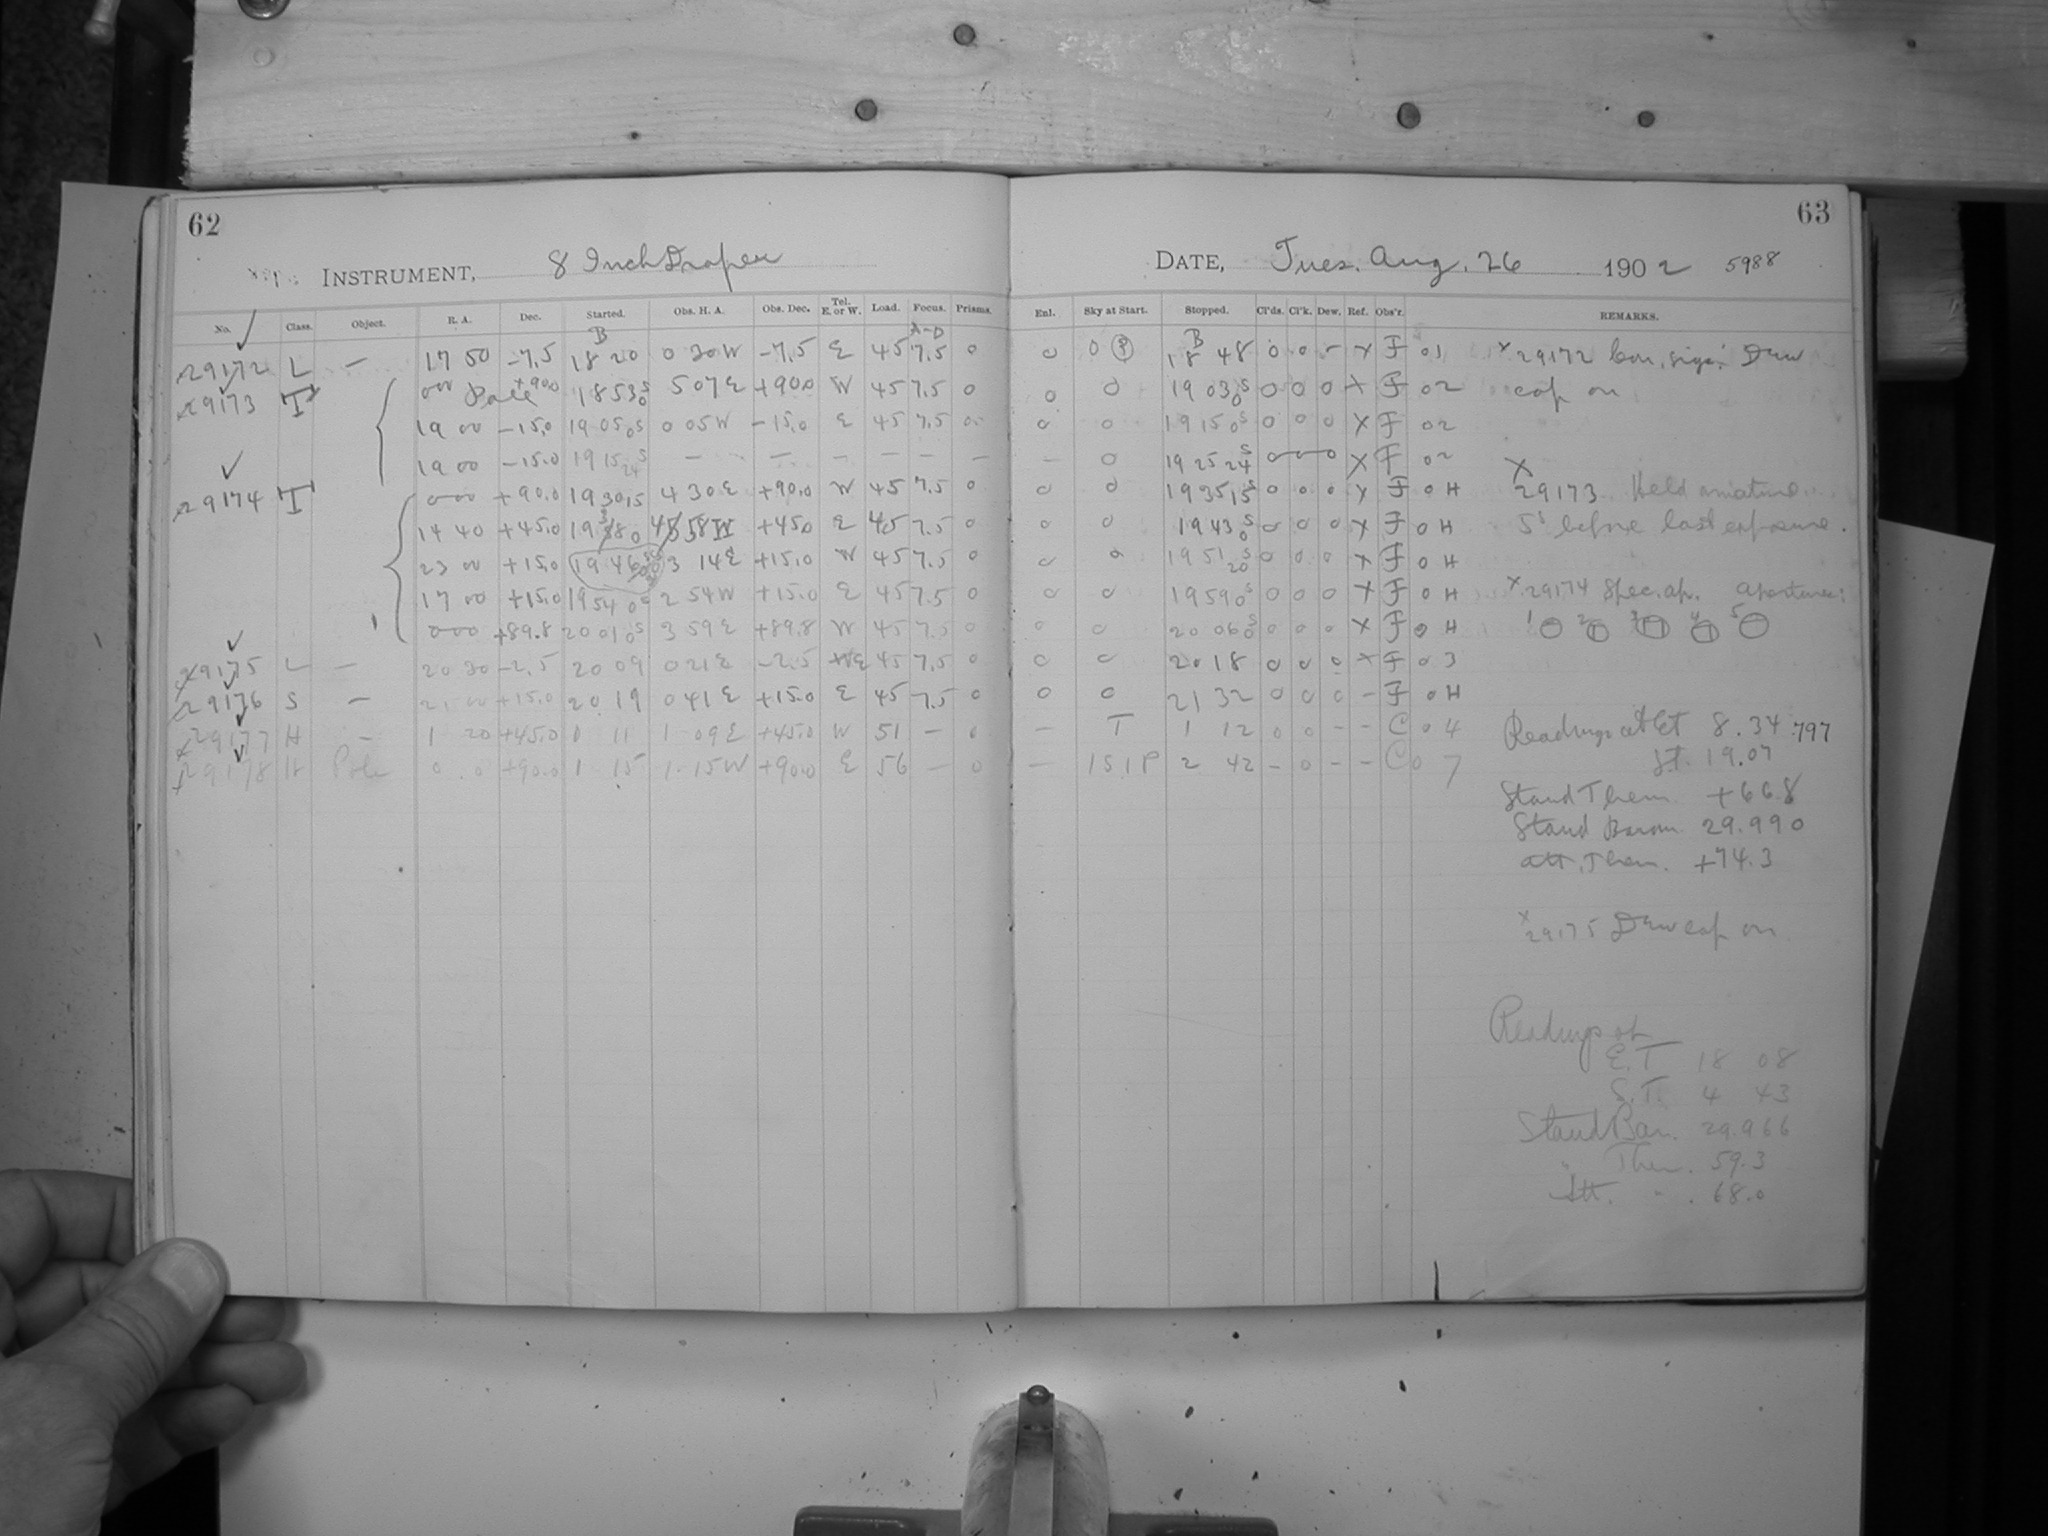 62
INSTRUMENT, 8 Inch Draper
No. Class. Object. R. A. Dec. Started. Obs. H. A. Obs. Dec. Tel. E. or W. Load. Focus. Prisms.
B A-D
29172 L — 17 50 -7.5 18 20 0 30W -7.5 E 45 7.5 0
29173 I 0 00 Pole +90.0 18 53 0s 5 07E +90.0 W 45 7.5 0
19 00 -15.0 19 05 0s 0 05W -15.0 E 45 7.5 0
19 00 -15.0 19 15 24s — — — — — —
29174 I 0 00 +90.0 19 30 15 4 30E +90.0 W 45 7.5 0
14 40 +45.0 19 38 0 4 58W +45.0 E 45 7.5 0
23 00 +15.0 19 46 3 14E +15.0 W 45 7.5 0
17 00 +15.0 19 54 0s 2 54W +15.0 E 45 7.5 0
0 00 +89.8 20 01 0s 3 59E +89.8 W 45 7.5 0
29175 L — 20 30 -2.5 20 09 0 21E -2.5 E 45 7.5 0
29176 S — 21 00 +15.0 20 19 0 41E +15.0 E 45 7.5 0
29177 H — 1 20 +45.0 0 11 1 09E +45.0 W 51 — 0
29178 H Pole 0 0 +90.0 1 15 1 15W +90.0 E 56 — 0
63
DATE, Tues. Aug. 26 1902 5988
Enl. Sky at Start. Stopped. Cl'ds. Cl'k. Dew. Ref. Obs'r. REMARKS.
B
0 0 18 48 0 0 - X F 01 x 29172 Dew
0 0 19 03 0s 0 0 0 X F 02 cap on
0 0 19 15 0s 0 0 0 X F 02
— 0 19 25 24s 0 0 0 X F 02 X
0 0 19 35 15s 0 0 0 X F 0H 29173 Held
0 0 19 43 0s 0 0 0 X F 0H 5s before last exposure.
0 0 19 51 20s 0 0 0 X F 0H
0 0 19 59 0s 0 0 0 X F 0H x 29174 Spec. ap. apertures:
0 0 20 06 0s 0 0 0 X F 0H 1 2 3 4 5
0 0 20 18 0 0 0 X F 03
0 0 21 32 0 0 0 - F 0H
— T 1 12 0 0 - - C 04 Readings at Et 8.34 797
— 1S1P 2 42 - 0 - - C 07 St. 19.07
Stand Them +66.8
Stand Barom 29.990
att. Them. +74.3
x 29175 Dew cap on
Readings at
E.T. 18 08
S.T. 4 43
Stand Bar. 29.966
" Ther. 59.3
Att. " . 68.0